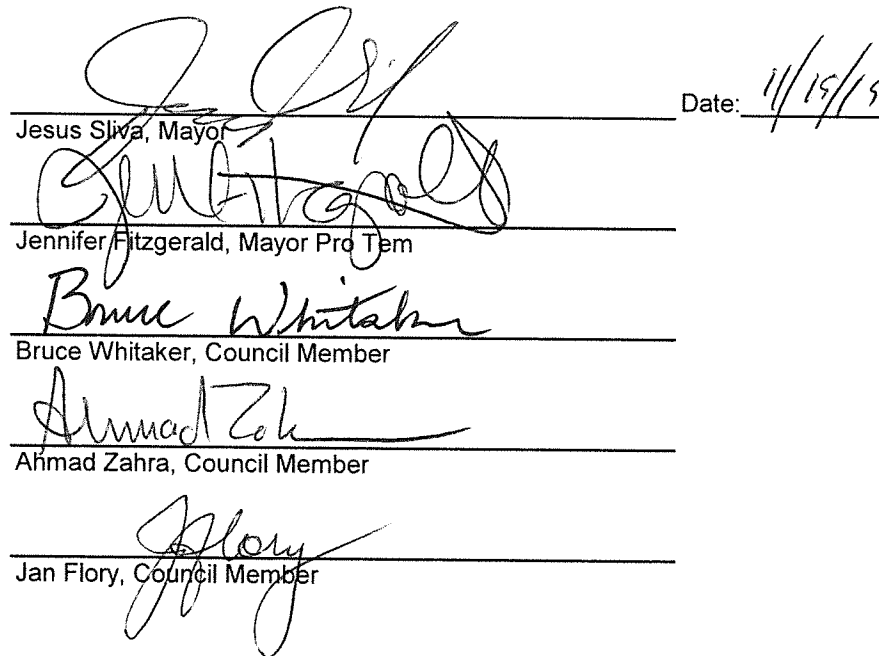 Date: 11/19/19
Jesus Sliva, Mayor
Jennifer Fitzgerald, Mayor Pro Tem
Bruce Whitaker
Bruce Whitaker, Council Member
Ahmad Zah
Ahmad Zahra, Council Member
J Flory
Jan Flory, Council Member